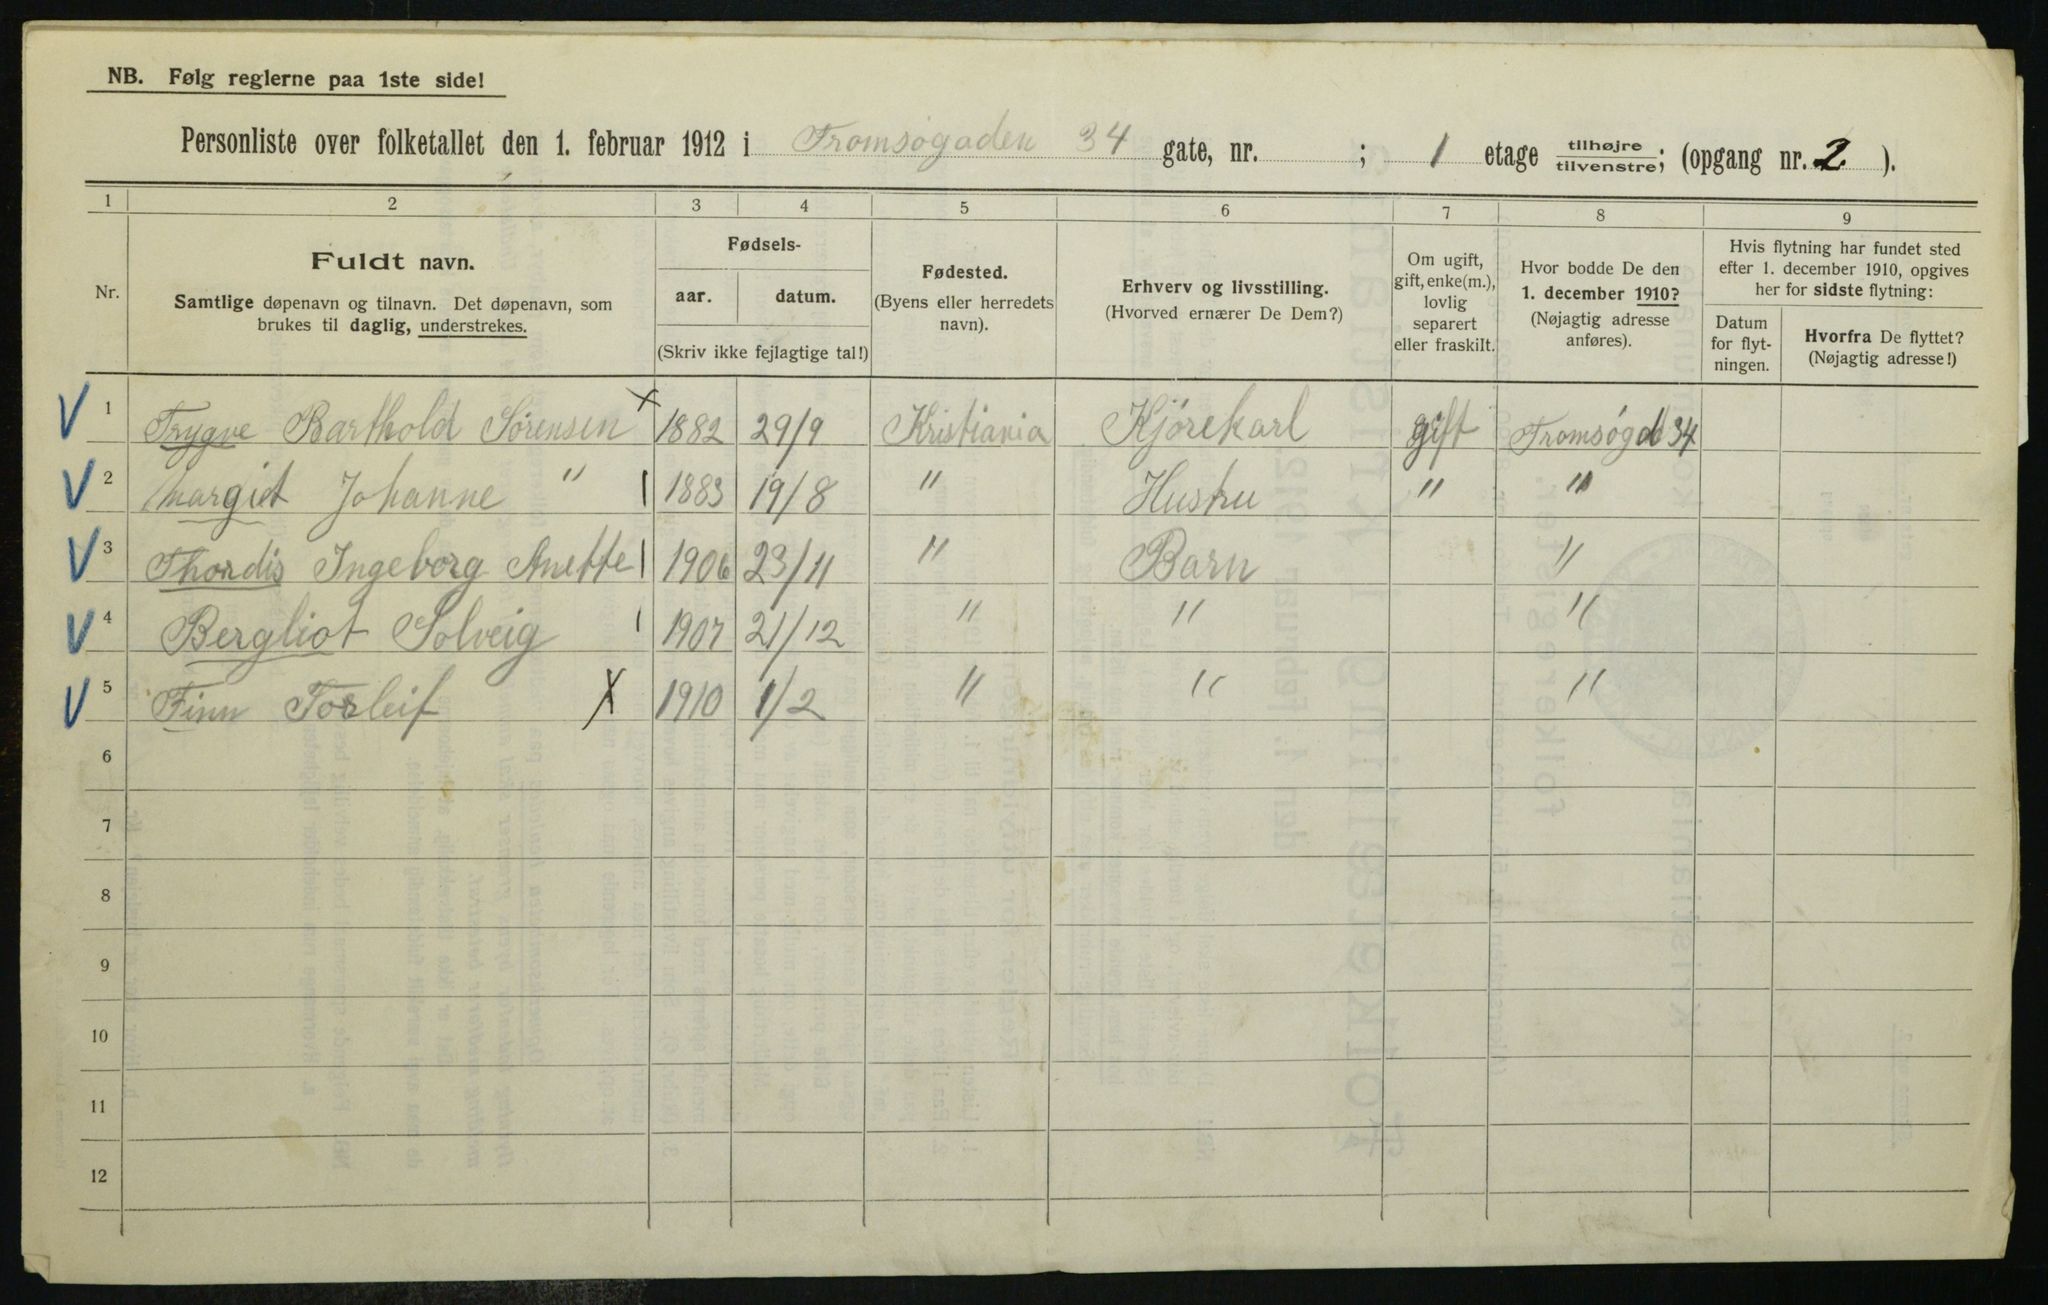 NB. Følg reglerne paa 1ste side!
Personliste over folketallet den 1. februar 1912 i Tromsøgaden 34 gate, nr. ; 1 etage tilhøjre/tilvenstre; (opgang nr. 2 ).
1 2 3 4 5 6 7 8 9
Nr.
Fuldt navn.
Samtlige døpenavn og tilnavn. Det døpenavn, som
brukes til daglig, understrekes.
Fødsels-
aar. datum.
(Skriv ikke fejlagtige tal!)
Fødested.
(Byens eller herredets
navn).
Erhverv og livsstilling.
(Hvorved ernærer De Dem?)
Om ugift,
gift, enke(m.),
lovlig
separert
eller fraskilt.
Hvor bodde De den
1. december 1910?
(Nøjagtig adresse
anføres).
Hvis flytning har fundet sted
efter 1. december 1910, opgives
her for sidste flytning:
Datum
for flyt-
ningen.
Hvorfra De flyttet?
(Nøjagtig adresse!)
V 1 Trygve Barthold Sørensen x 1882 29/9 Kristiania Kjørekarl gift Tromsøgd 34
V 2 Margiet Johanne " | 1883 19/8 " Hustru " "
V 3 Thordis Ingeborg Anette | 1906 23/11 " Barn "
V 4 Bergliot Solveig | 1907 21/12 " " "
V 5 Finn Torleif X 1910 1/2 " " "
6
7
8
9
10
11
12